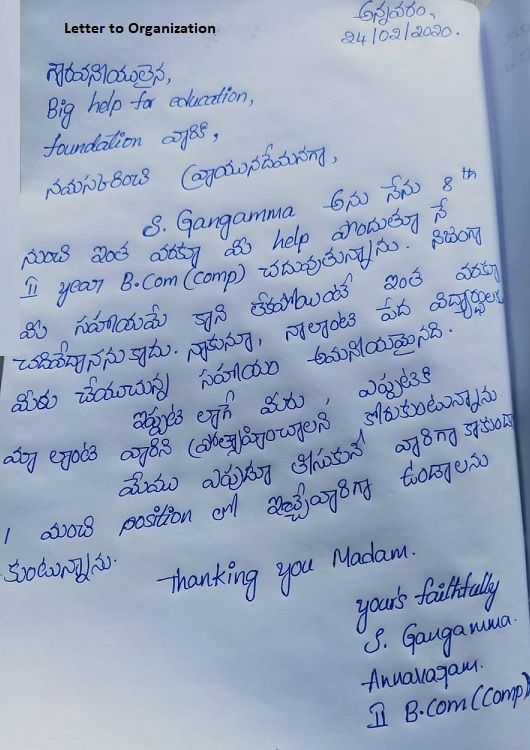 Letter to Organization
అన్నవరం,
24/02/2020.
గౌరవనీయులైన,
Big help for education,
foundation వారికి,
నమస్కరించి వ్రాయునదేమనగా,
S. Gangamma అను నేను 8 th
నుంచి ఇంత వరకూ మీ help పొందుతూ నే
II year B.Com (comp) చదువుతున్నాను. నిజంగా
మీ సహాయమే కాని లేకపోయింటే ఇంత వరకూ
చదివేదానను కాదు. నాకునూ, నాలాంటి పేద విద్యార్థులకు
మీరు చేయుచున్న సహాయం అమనీయమైనది.
ఇప్పుటి లాగే మీరు, ఎప్పుటికి
మా లాంటి వారిని ప్రోత్సాహించాలని కోరుకుంటున్నాను
మేము ఎప్పుడూ తీసుకునే వారిగా కాకుండా
1 మంచి position లో ఇచ్చేవారిగా ఉండాలను
కుంటున్నాను.
Thanking you Madam.
your's faithfully
S. Gangamma.
Annavaram.
II B.Com (Comp)